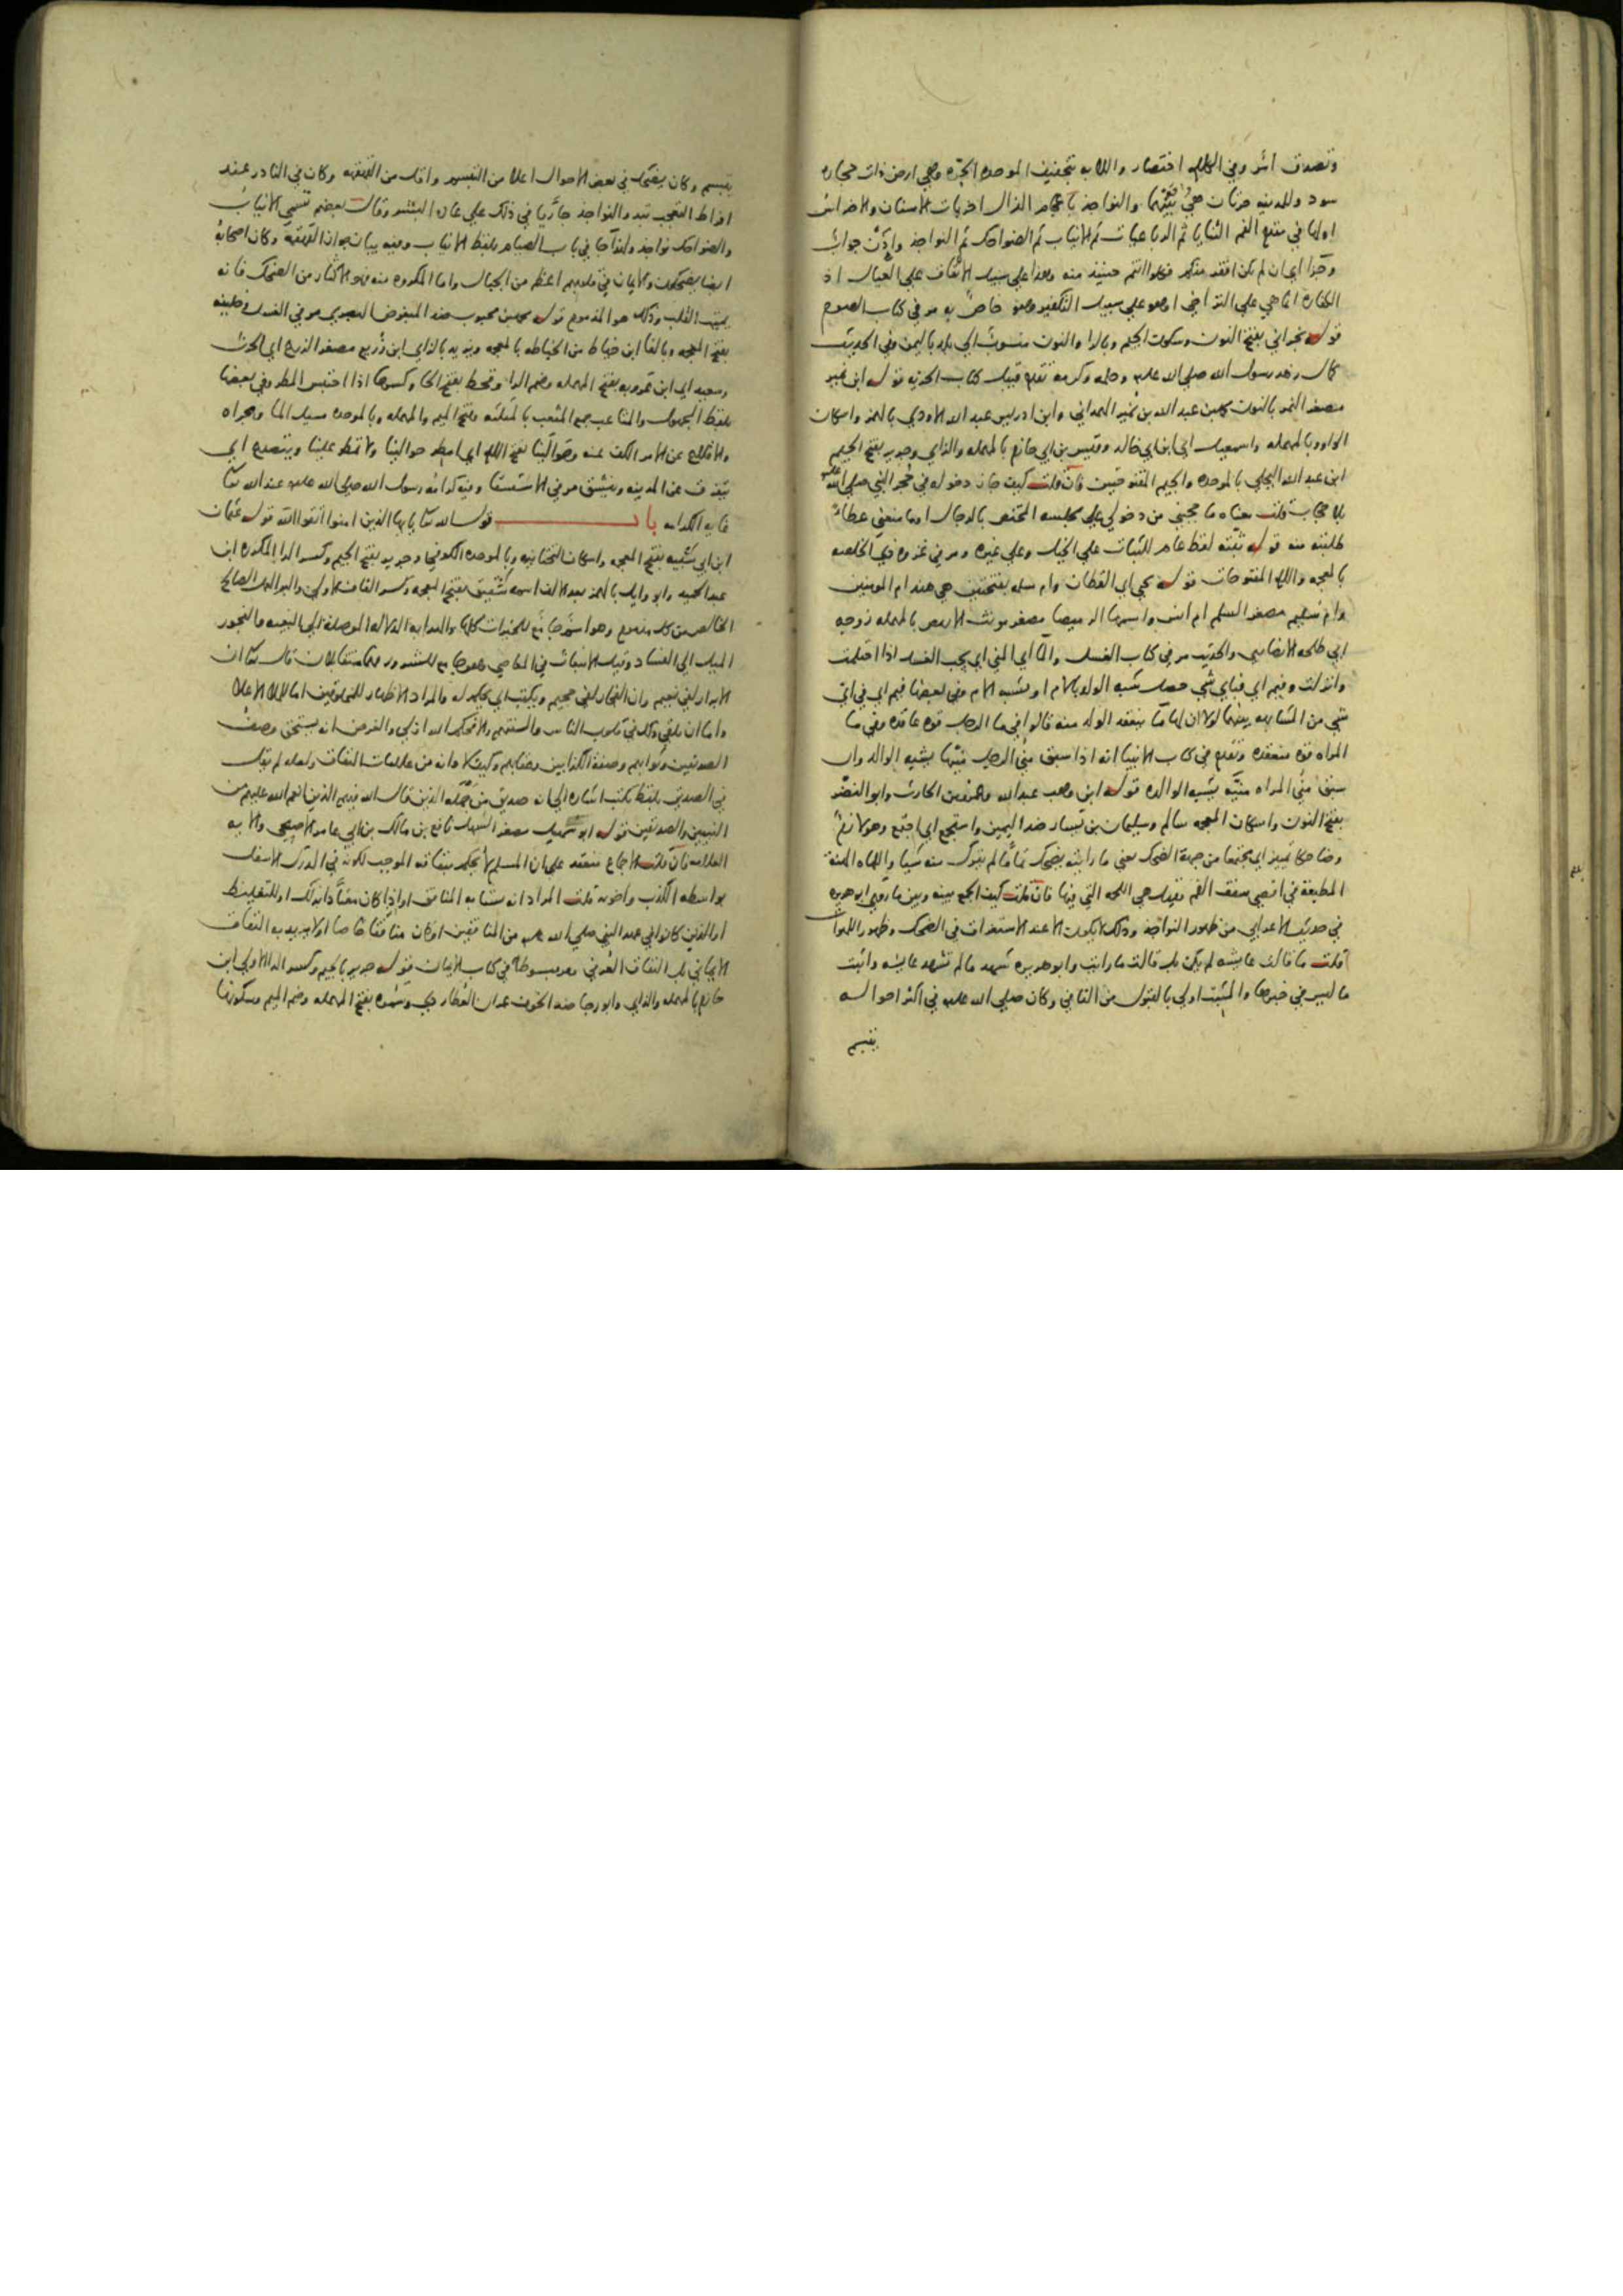 وتصدق امر وفي الكلام اختصار واللابه بتخفيف الموحده الحره وهي ارض ذات حجاره
سود وللمدينه حرتان هي بينهما والنواجذ باعجام الذال اخريات الاسنان والاضراس
اولها في مقدم الفم الثنايا ثم الرباعيات ثم الانياب ثم الضواحك ثم النواجذ واذن جواب
وجزا اي ان لم يكن افقر منكم فكلوا انتم حينئذ منه وهذا على سبيل الانفاق على العيال اذ
الكفاره انما هي على التراخي او هو على سبيل التكفير وهو خاص به مر في كتاب الصوم
قوله نجراني بفتح النون وسكون الجيم وبالرا والنون منسوب الى بلد باليمن وفي الحديث
كمال زهد رسول الله صلى الله عليه وحلمه وكرمه تقدم قبيل كتاب الجزيه قوله ابن نمير
مصغر النمر بالنون محمد بن عبد الله بن نمير الهمداني وابن ادريس عبد الله الاودي بالهمز واسكان
الواو وبالمهمله واسمعيل اي ابن ابي خالد وقيس بن ابي حازم بالمهمله والزاي وجرير بفتح الجيم
ابن عبد الله البجلي بالموحده والجيم المفتوحتين فان قلت كيف جاز دخوله في حجر النبي صلى الله عليه
بلا حجاب قلت معناه ما حجبني من دخولي على مجلسه المختص بالرجال او ما منعني عطاء
طلبته منه قوله ثبته لفظ عام للثبات على الخيل وعلى غيره ومر في غزوه ذي الخلصه
بالمعجمه واللام المفتوحات قوله يحيى اي القطان وام سلمه بفتحتين هي هند ام المومنين
وام سليم مصغر السلم ام انس واسمها الرميصا مصغر مونث الارمص بالمهمله زوجه
ابي طلحه الانصاري والحديث مر في كتاب الغسل والما اي المني اي يجب الغسل اذا احتلمت
وانزلت وفبم اي فباي شي حصل شبه الولد بالام او بشبه الام وفي بعضها فيم اي في اي
شي من المشابهه بينهما لولا ان لها ما ينعقد الولد منه قالوا في ما الرجل قوه عاقده وفي ما
المراه قوه منعقده وتقدم في كتاب الانبيا انه اذا سبق مني الرجل منيها يشبه الوالد وان
سبق مني المراه منيه يشبه الوالده قوله ابن وهب عبد الله وعمرو بن الحارث وابو النضر
بفتح النون واسكان المعجمه سالم وسليمان بن يسار ضد اليمين واستجمع اي اجتمع وهو لازم
وضاحكا تمييز اي مجتمعا من جهة الضحك يعني ما رايته يضحك تاما لم يترك منه شيا واللهاه الهنة
المطبقة في اقصى سقف الفم وقيل هي اللحمه التي فيها فان قلت كيف الجمع بينه وبين ما روى ابو هريره
في حديث الاعرابي من ظهور النواجذ وذلك لا يكون الا عند الاستغراق في الضحك وظهور اللهوات
قلت ما قالت عايشه لم يكن بل قالت ما رايت وابو هريره شهد ما لم تشهد عايشه واثبت
ما ليس في خبرها والمثبت اولى بالقبول من النافي وكان صلى الله عليه في اكثر احواله
يتبسم
يتبسم وكان يضحك في بعض الاحوال اعلا من التبسم واقل من القهقهه وكان في النادر عند
افراط التعجب تبدو النواجذ جاريا في ذلك على عادة البشر وقال بعضهم تسمى الانياب
والضواحك نواجذ ولهذا جا في باب الصيام بلفظ الانياب وفيه بيان جواز القهقهه وكان اصحابه
ايضا يضحكون والايمان في قلوبهم اعظم من الجبال واما المكروه منه فهو الاكثار من الضحك فانه
يميت القلب وذلك هو المذموم قوله محمد بن محبوب ضد المبغوض البصري مر في الغسل وخليفه
بفتح المعجمه وبالفا ابن خياط من الخياطه بالمعجمه ويزيد بالزاي ابن زريع مصغر الزرع اي الحرث
وسعيد اي ابن عروبه بفتح المهمله وضم الرا وقحط بفتح الحا وكسرها اذا احتبس المطر وفي بعضها
بلفظ المجهول والمثاعب جمع المثعب بالمثلثه وفتح الميم والمهمله وبالموحده مسيل الما ومجراه
والاقلاع عن الامر الكف عنه وحوالينا بفتح اللام اي امطر حوالينا ولا تمطر علينا ويتصدع اي
يتفرق عن المدينه وينشق مر في الاستسقا وفيه كرامه رسول الله صلى الله عليه عند الله تعالى
غايه الكرامه باب قول الله تعالى يايها الذين امنوا اتقوا الله قوله عثمان
ابن ابي شيبه بفتح المعجمه واسكان التحتانيه وبالموحده الكوفي وجرير بفتح الجيم وكسر الرا المكرره ابن
عبد الحميد وابو وايل بالهمز بعد الالف اسمه شقيق بفتح المعجمه وكسر القاف الاولى والبر العمل الصالح
الخالص من كل مذموم وهو اسم جامع للخيرات كلها والهدايه الدلاله الموصلة الى البغيه والفجور
الميل الى الفساد وقيل الانبعاث في المعاصي وهو جامع للشرور فهما متقابلان قال تعالى ان
الابرار لفي نعيم وان الفجار لفي جحيم ويكتب اي يحكم له والمراد الاظهار للمخلوقين اما للملا الاعلا
واما ان يلقى ذلك في قلوب الناس والسنتهم والا فحكم الله ازلي والغرض انه يستحق وصف
الصديقين وثوابهم وصفة الكذابين وعقابهم وكيف لا وانه من علامات النفاق ولعله لم يقل
في الصديق بلفظ يكتب اشاره الى انه صديق من جمله الذين قال الله فيهم الذين انعم الله عليهم من
النبيين والصديقين قوله ابو سهيل مصغر السهل نافع بن مالك بن ابي عامر الاصبحي والايه
العلامه فان قلت الاجماع منعقد على ان المسلم لا يحكم بنفاقه الموجب لكونه في الدرك الاسفل
بواسطه الكذب واخويه قلت المراد انه يشابه المنافق او اذا كان معتادا بذلك او للتغليظ
او الذين كانوا في عهد النبي صلى الله عليه من المنافقين او كان منافقا خاصا او لا يريد به النفاق
الايماني بل النفاق العرفي مر مبسوطا في كتاب الايمان قوله جرير بالجيم وكسر الرا الاولى ابن
حازم بالمهمله والزاي وابو رجا ضد الخوف عمران العطاردي وسمره بفتح المهمله وضم الميم وسكونها